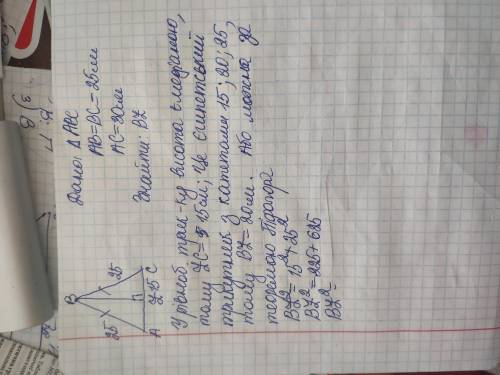 Дано: Δ ABC
AB=BC=25см
AC=30см
Знайти: BZ
B
25
25
A
Z
15
C
У рівноб. трик-ку висота є медіаною,
тому ZC = 15см; Це єгипетський
трикутник з катетами 15; 20; 25,
тому BZ = 20см. Або можна за
теоремою Піфагора
BZ² = 15² + 25²
BZ² = 225 + 625
BZ² =